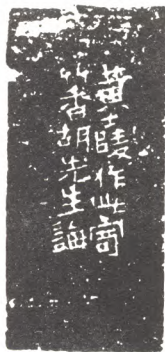 黃士陵作此寄
竹香胡先生誨